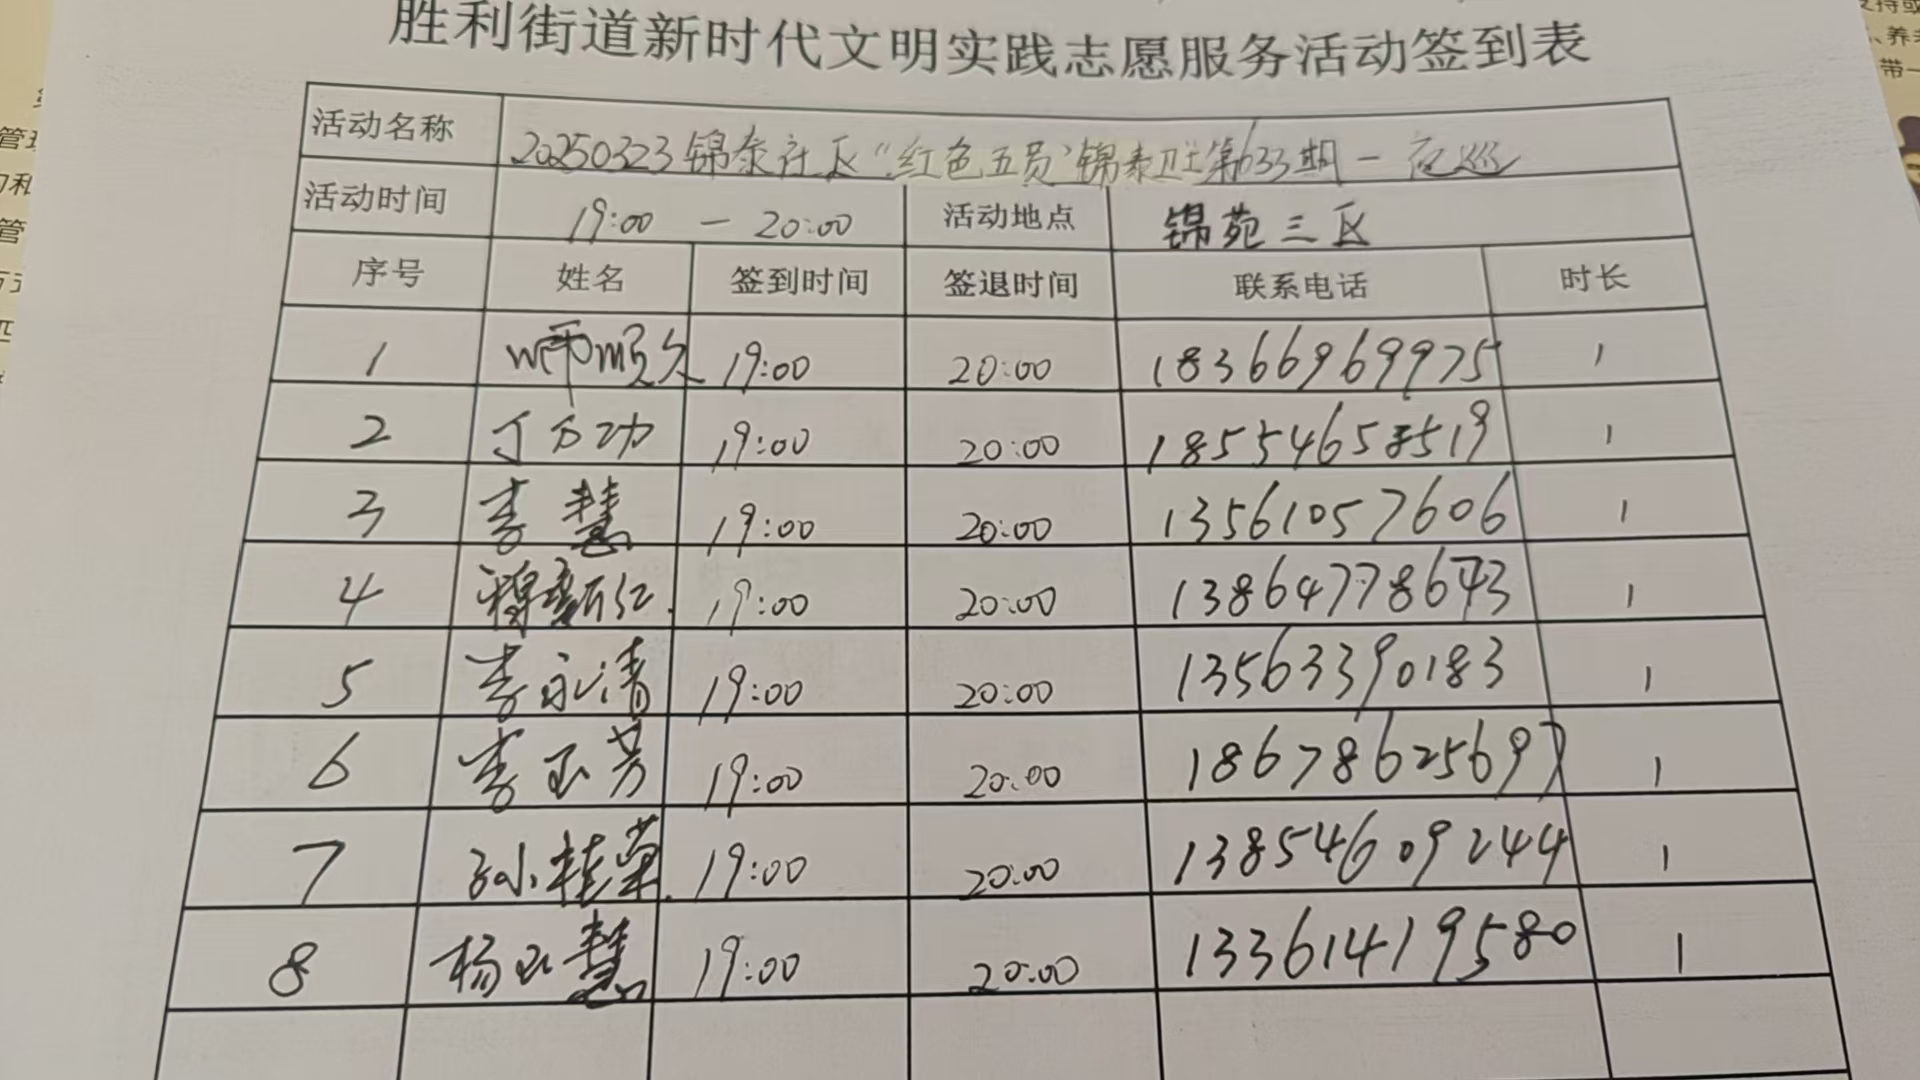 胜利街道新时代文明实践志愿服务活动签到表
活动名称 20250323锦泰社区“红色五员”锦泰卫士第633期一夜巡
活动时间 19:00 — 20:00 活动地点 锦苑三区
序号 姓名 签到时间 签退时间 联系电话 时长
1 19:00 20:00 18366969975 1
2 丁方功 19:00 20:00 18554658519 1
3 李慧 19:00 20:00 13561057606 1
4 19:00 20:00 13864778643 1
5 李永清 19:00 20:00 13563390183 1
6 李玉芳 19:00 20:00 18678625697 1
7 孙桂荣 19:00 20:00 13854609244 1
8 杨玉慧 19:00 20:00 13361419580 1